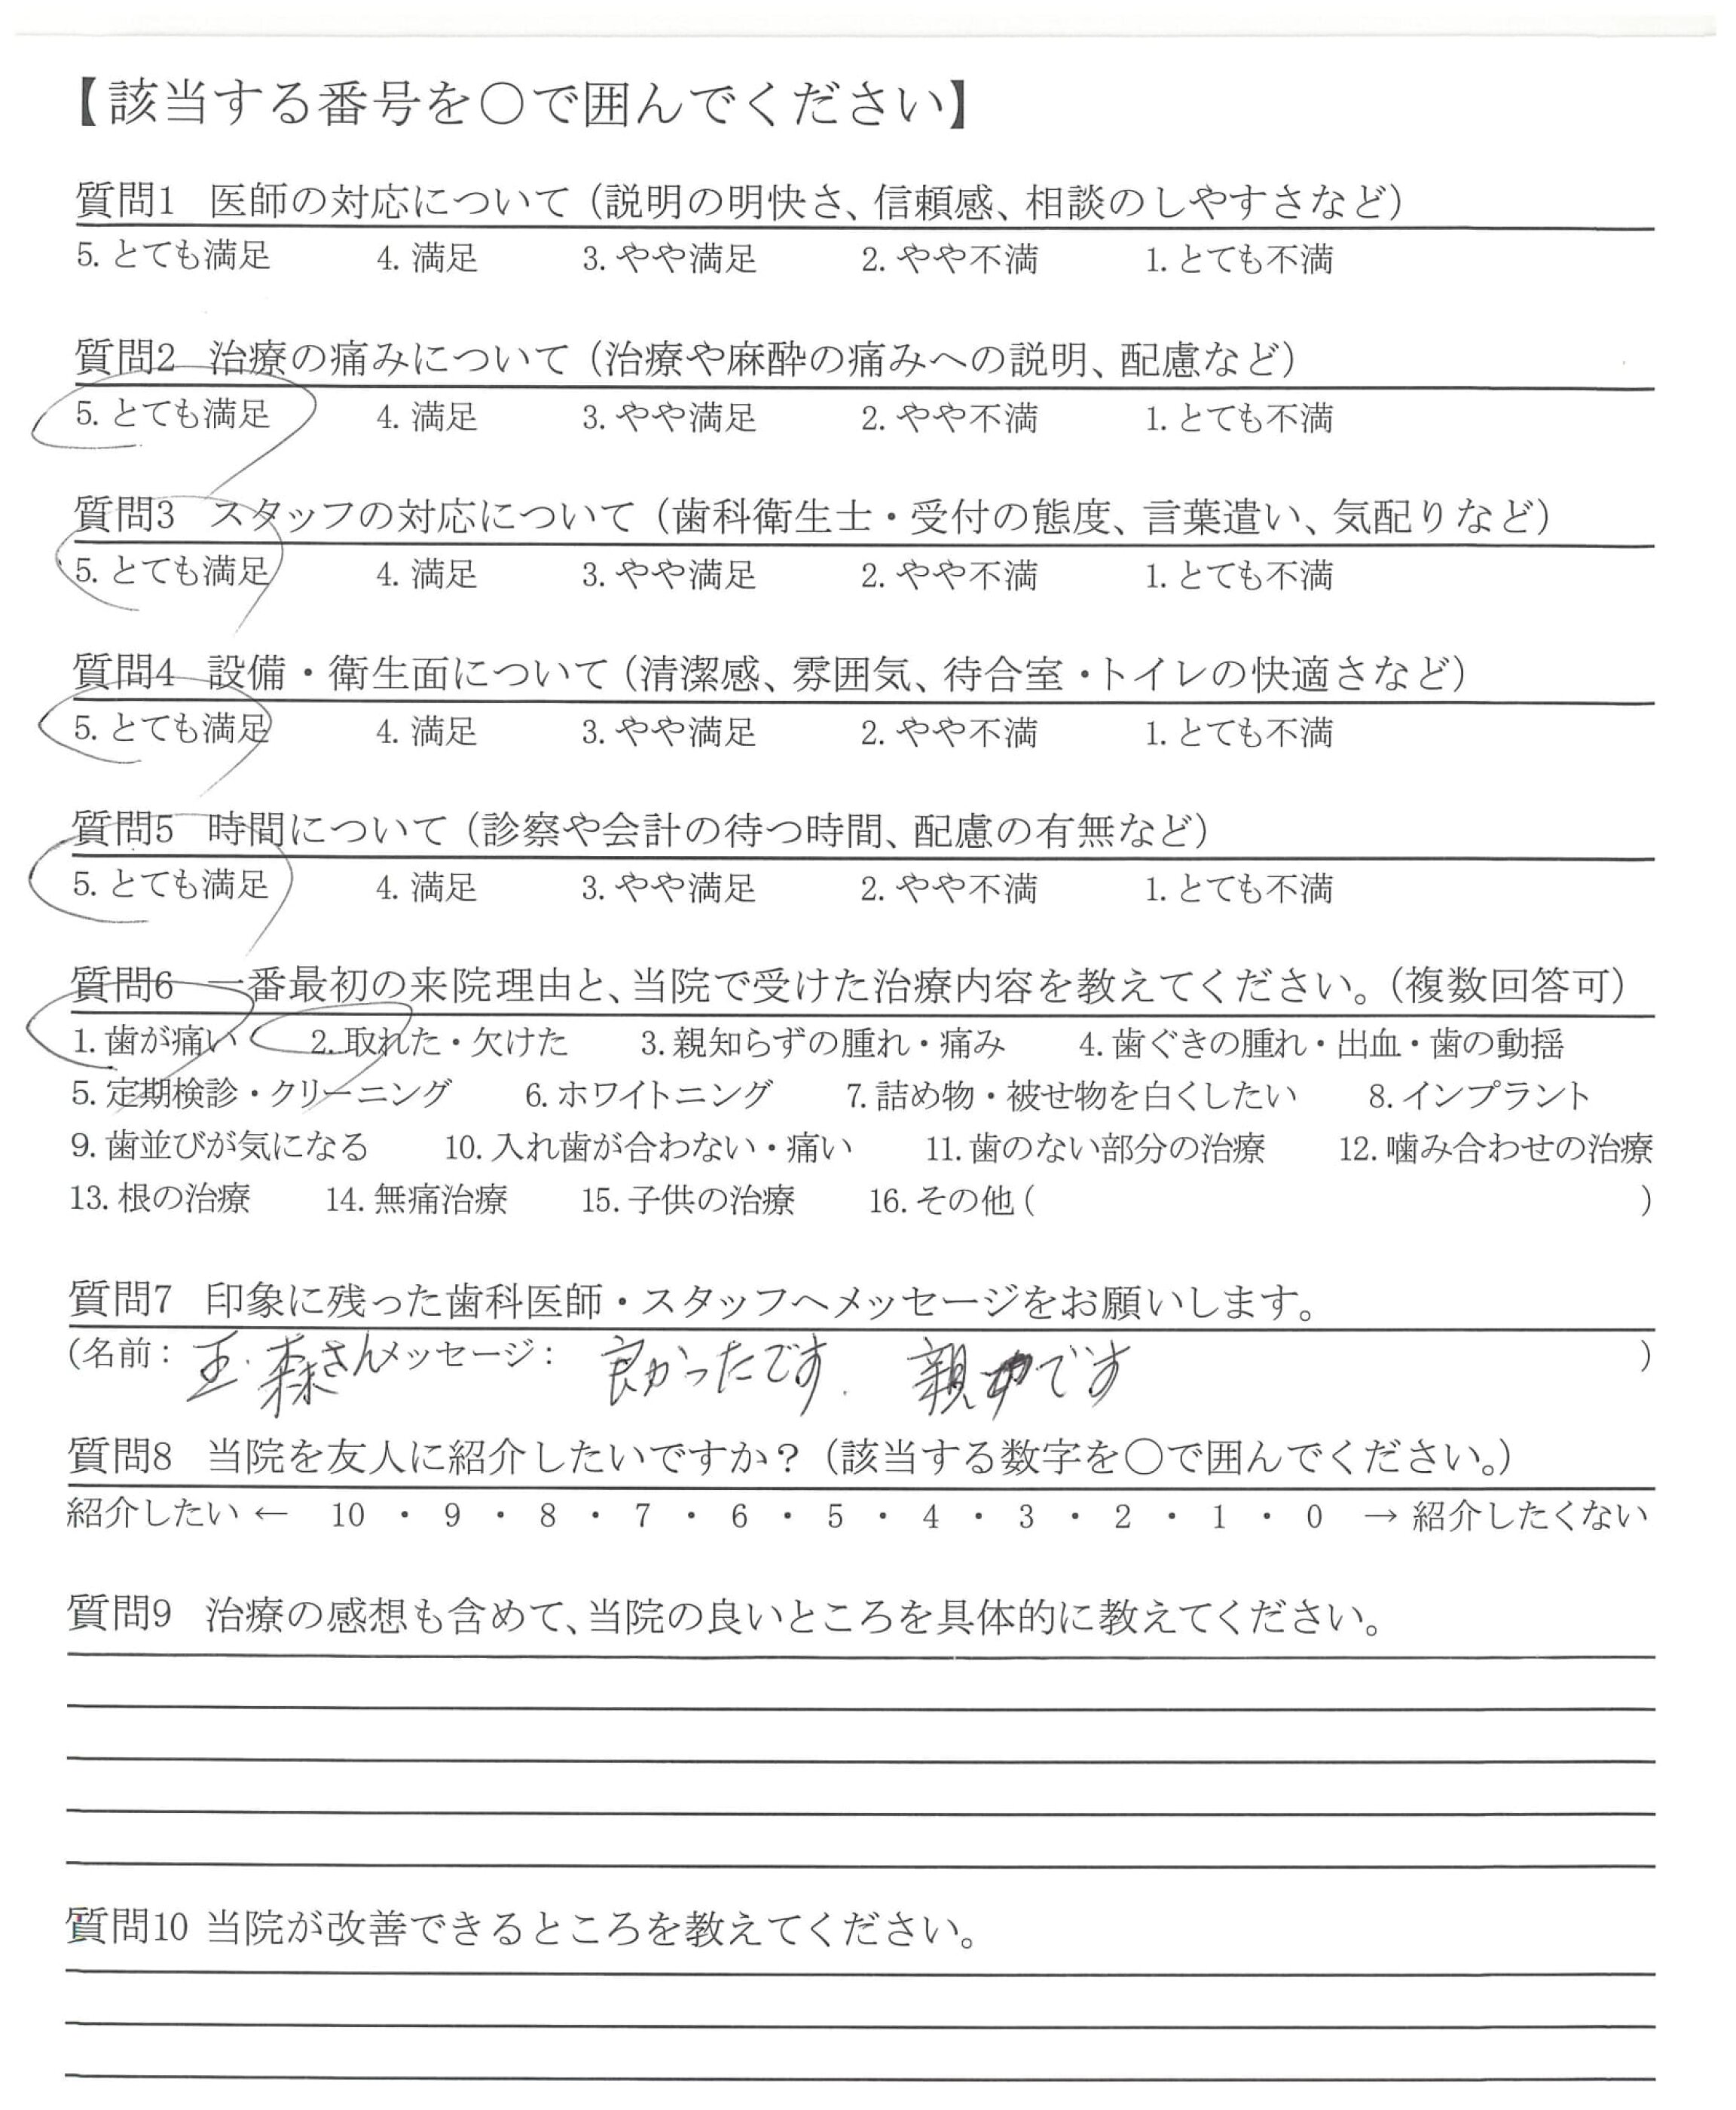 【該当する番号を○で囲んでください】
質問1 医師の対応について（説明の明快さ、信頼感、相談のしやすさなど）
5. とても満足 4. 満足 3. やや満足 2. やや不満 1. とても不満
質問2 治療の痛みについて（治療や麻酔の痛みへの説明、配慮など）
5. とても満足 4. 満足 3. やや満足 2. やや不満 1. とても不満
質問3 スタッフの対応について（歯科衛生士・受付の態度、言葉遣い、気配りなど）
5. とても満足 4. 満足 3. やや満足 2. やや不満 1. とても不満
質問4 設備・衛生面について（清潔感、雰囲気、待合室・トイレの快適さなど）
5. とても満足 4. 満足 3. やや満足 2. やや不満 1. とても不満
質問5 時間について（診察や会計の待つ時間、配慮の有無など）
5. とても満足 4. 満足 3. やや満足 2. やや不満 1. とても不満
質問6 一番最初の来院理由と、当院で受けた治療内容を教えてください。（複数回答可）
1. 歯が痛い 2. 取れた・欠けた 3. 親知らずの腫れ・痛み 4. 歯ぐきの腫れ・出血・歯の動揺
5. 定期検診・クリーニング 6. ホワイトニング 7. 詰め物・被せ物を白くしたい 8. インプラント
9. 歯並びが気になる 10. 入れ歯が合わない・痛い 11. 歯のない部分の治療 12. 噛み合わせの治療
13. 根の治療 14. 無痛治療 15. 子供の治療 16. その他（ ）
質問7 印象に残った歯科医師・スタッフへメッセージをお願いします。
（名前： 王. 森さん メッセージ： 良かったです. 親です ）
質問8 当院を友人に紹介したいですか？（該当する数字を○で囲んでください。）
紹介したい ← 10 ・ 9 ・ 8 ・ 7 ・ 6 ・ 5 ・ 4 ・ 3 ・ 2 ・ 1 ・ 0 → 紹介したくない
質問9 治療の感想も含めて、当院の良いところを具体的に教えてください。
質問10 当院が改善できるところを教えてください。